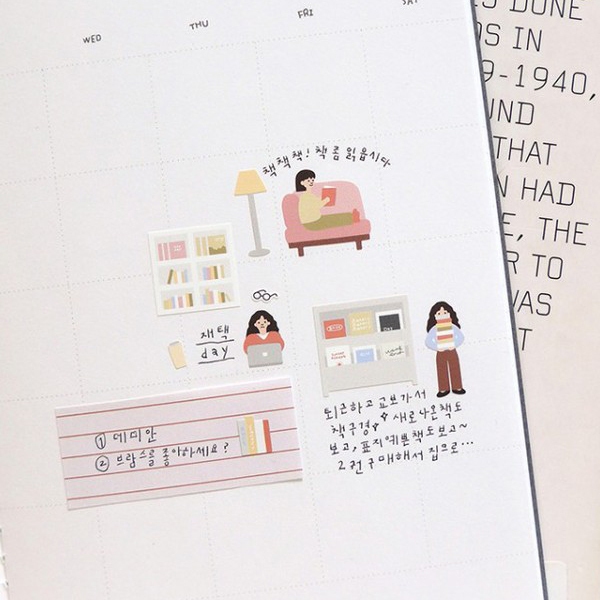 WED THU FRI SAT
책책책! 책 좀 읽읍시다
재택
day
① 데미안
② 브람스를 좋아하세요?
퇴근하고 교보가서
책구경 새로나온책도
보고, 표지예쁜책도보고~
2권구매해서 집으로...
S DONE
DS IN
9-1940,
UND
THAT
N HAD
E, THE
R TO
WAS
T